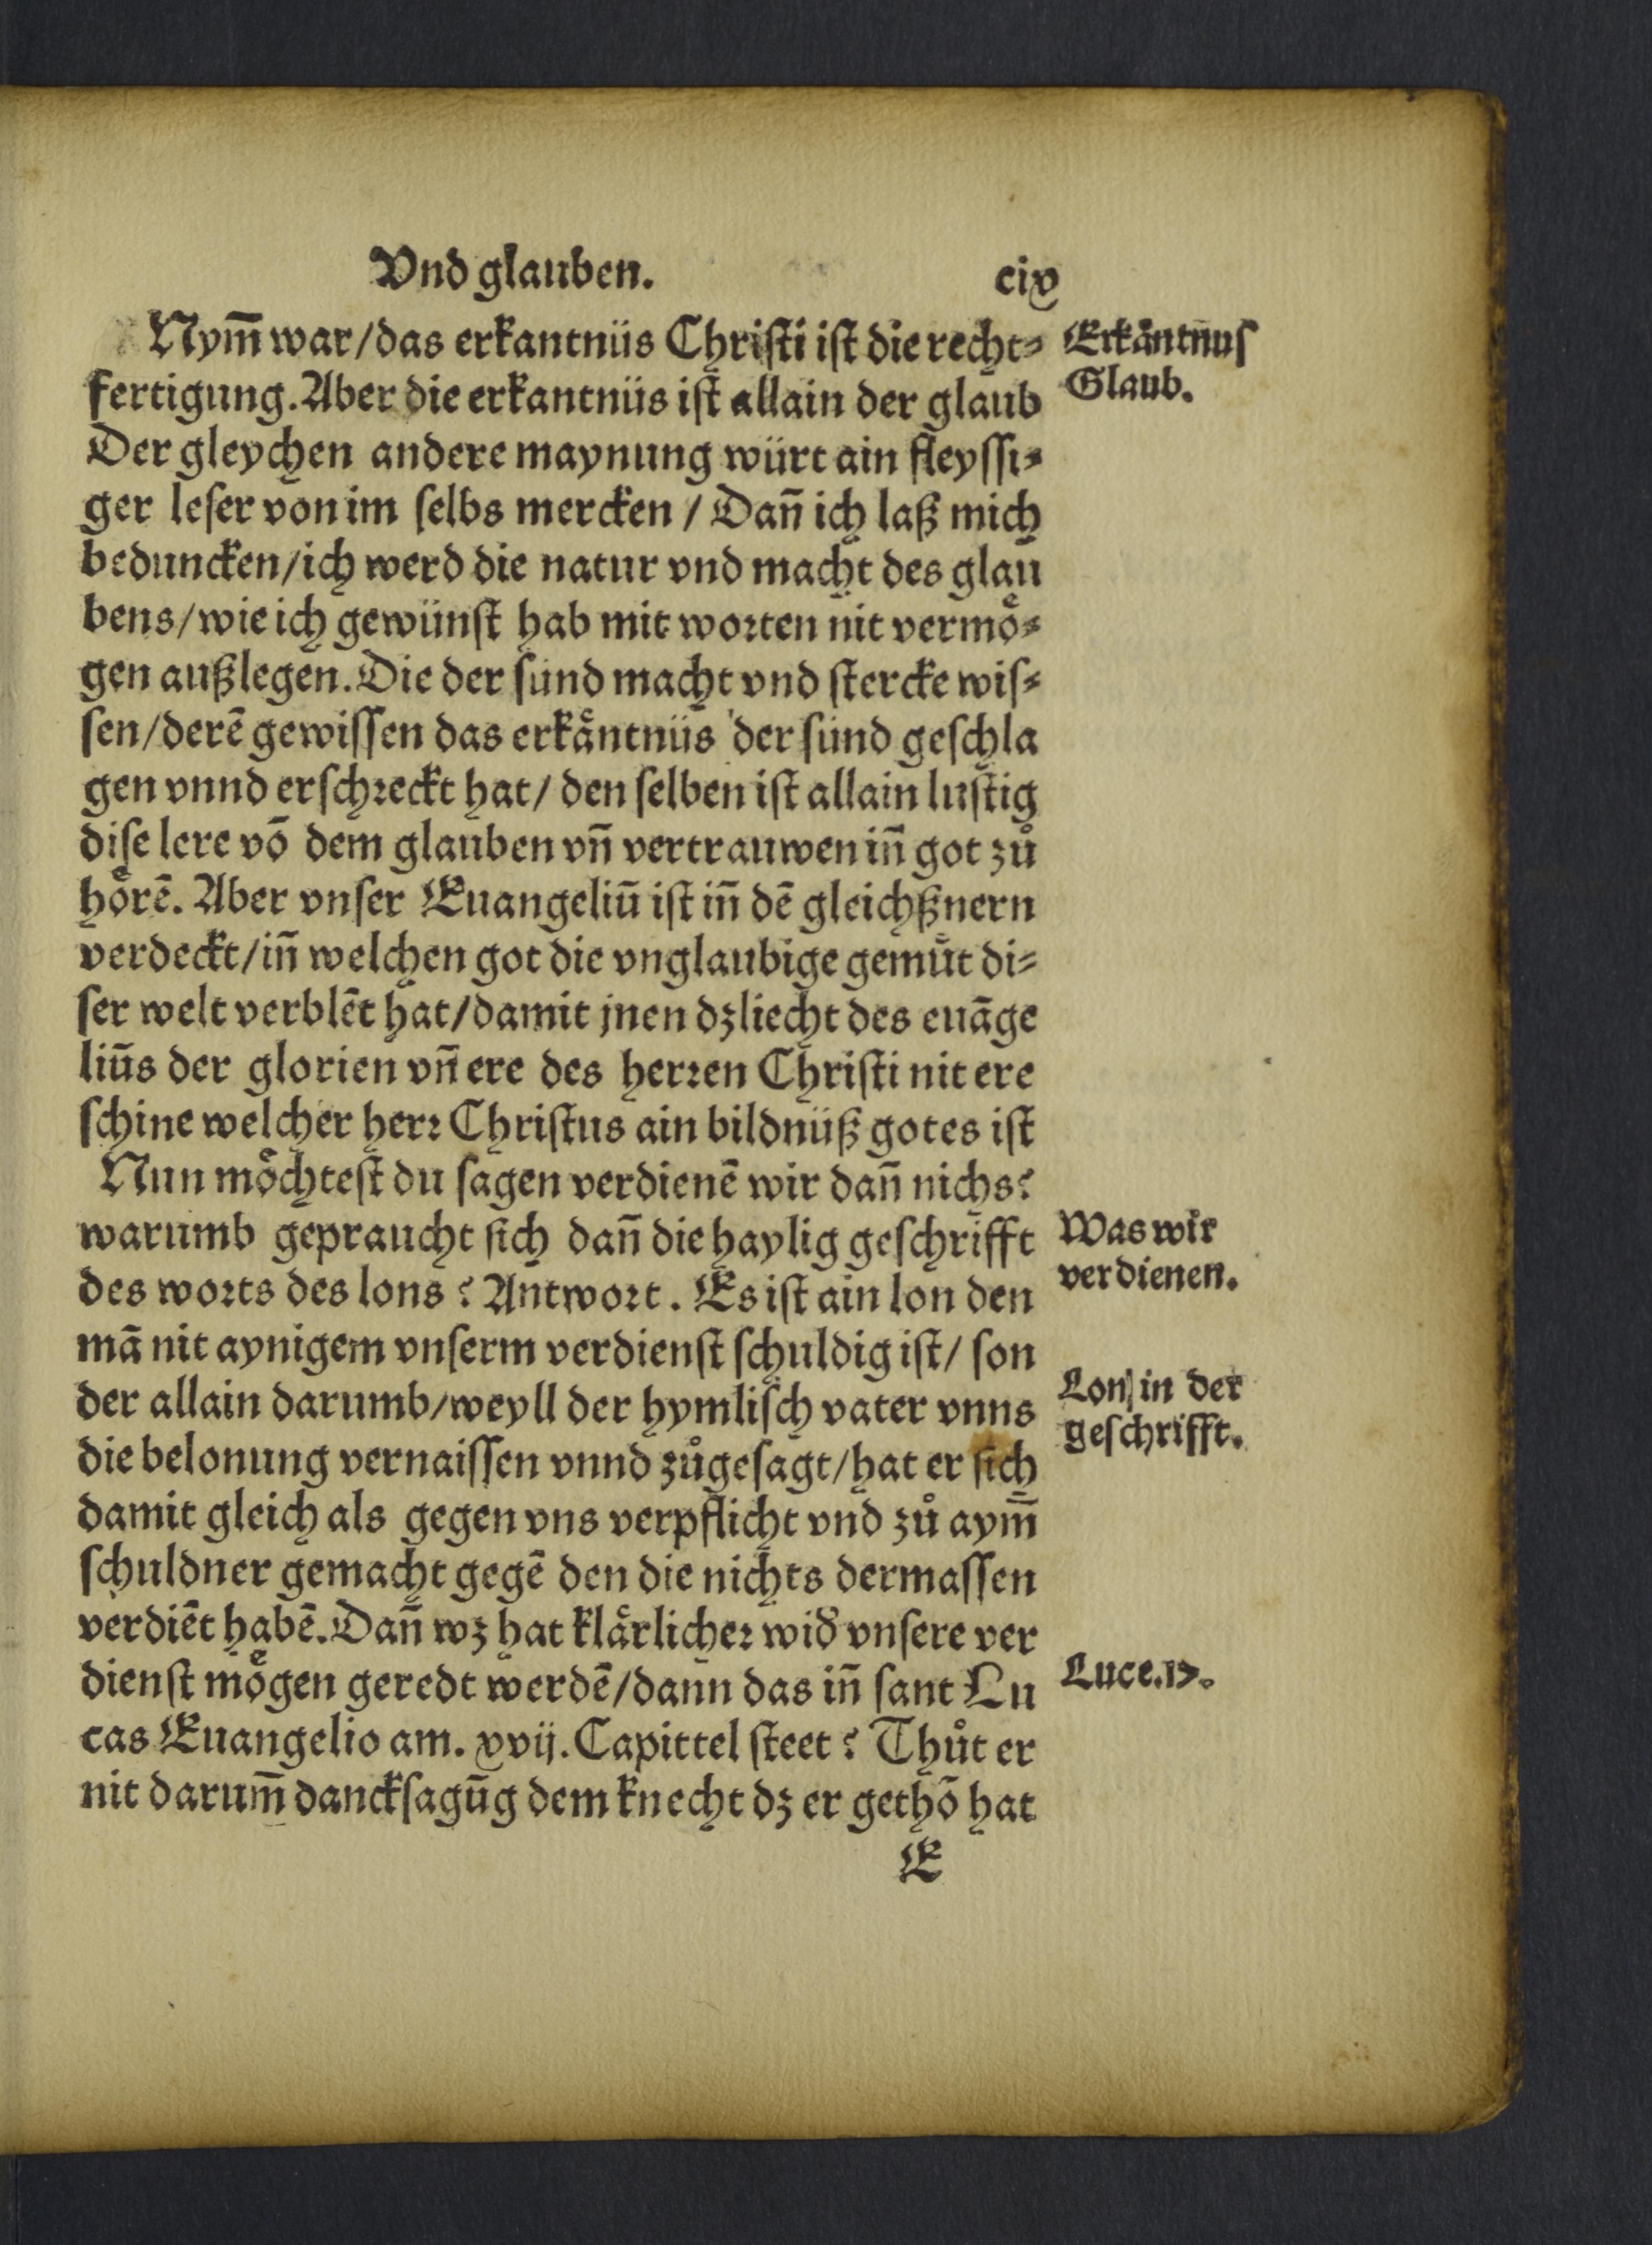 Vnd glauben.
cix
Nym̄ war/das erkantnüs Chriſti iſt die recht⸗
fertigung. Aber die erkantnüs iſt allain der glaub
Der gleychen andere maynung würt ain fleyſſi⸗
ger leſer von im ſelbs mercken / Dan̄ ich laß mich
beduncken/ich werd die natur vnd macht des glau
bens/wie ich gewünſt hab mit worten nit vermoͤ⸗
gen außlegen. Die der ſünd macht vnd ſtercke wiſ⸗
ſen/derē gewiſſen das erkaͤntnüs der ſünd geſchla
gen vnnd erſchreckt hat/ den ſelben iſt allain luſtig
diſe lere vō dem glauben vn̄ vertrauwen in̄ got zuͦ
hoͤrē. Aber vnſer Euangeliū iſt in̄ dē gleichßnern
verdeckt/in̄ welchen got die vnglaubige gemuͤt di⸗
ſer welt verblēt hat/damit jnen dz liecht des euāge
liūs der glorien vn̄ ere des herren Chriſti nit ere
ſchine welcher herr Chriſtus ain bildnüß gotes iſt
Nun moͤchteſt du ſagen verdienē wir dan̄ nichs?
warumb gepraucht ſich dan̄ die haylig geſchrifft
des worts des lons? Antwort. Es iſt ain lon den
mā nit aynigem vnſerm verdienſt ſchuldig iſt/ ſon
der allain darumb/weyll der hymliſch vater vnns
die belonung vernaiſſen vnnd zuͦgeſagt/hat er ſich
damit gleich als gegen vns verpflicht vnd zuͦ aym̄
ſchuldner gemacht gegē den die nichts dermaſſen
verdiēt habē. Dan̄ wz hat klaͤrlicher wid̄ vnſere ver
dienſt moͤgen geredt werdē/dann das in̄ ſant Lu
cas Euangelio am. xvij. Capittel ſteet? Thuͦt er
nit darum̄ danckſagūg dem knecht dz er gethō hat
E
Erkaͤntnus
Glaub.
Was wir
verdienen.
Lon in der
geſchrifft.
Luce.17.